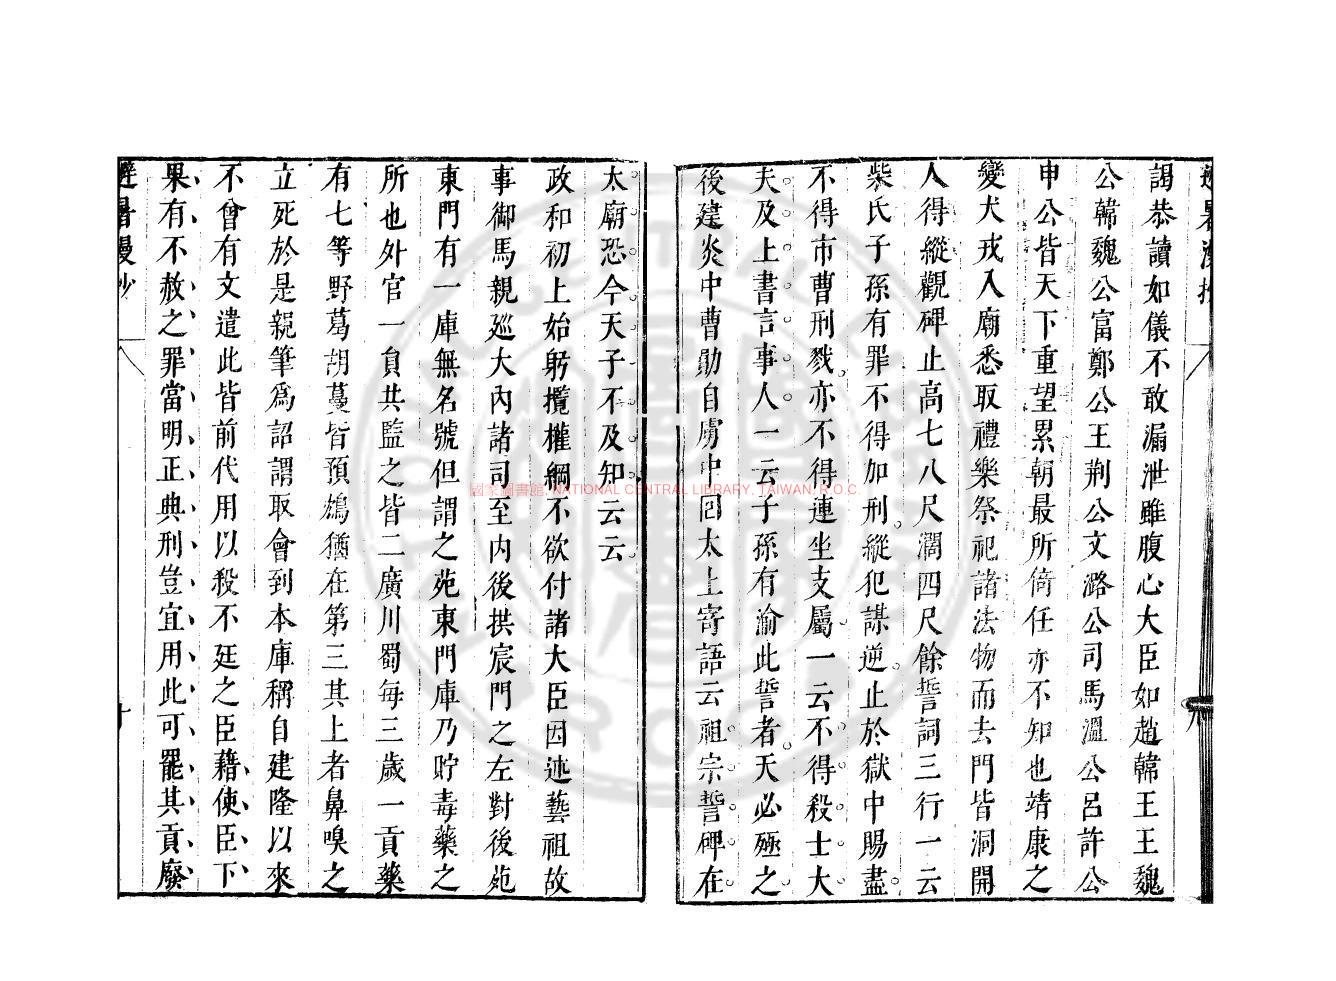 避暑漫抄
謁恭讀如儀不敢漏泄雖腹心大臣如趙韓王王魏
公韓魏公富鄭公王荆公文潞公司馬溫公呂許公
申公皆天下重望累朝最所倚任亦不知也靖康之
變犬戎入廟悉取禮樂祭祀諸法物而去門皆洞開
人得縱觀碑止高七八尺濶四尺餘誓詞三行一云
柴氏子孫有罪不得加刑縱犯謀逆止於獄中賜盡
不得市曹刑戮亦不得連坐支屬一云不得殺士大
夫及上書言事人一云子孫有渝此誓者天必殛之
後建炎中曹勛自虜中回太上寄語云祖宗誓碑在
太廟恐今天子不及知云云
政和初上始躬攬權綱不欲付諸大臣因述藝祖故
事御馬親廵大內諸司至内後拱宸門之左對後苑
東門有一庫無名號但謂之苑東門庫乃貯毒藥之
所也外官一員共監之皆二廣川蜀每三歲一貢藥
有七等野葛胡蔓皆預鴆猶在第三其上者鼻嗅之
立死於是親筆爲詔謂取會到本庫稱自建隆以來
不曾有文遣此皆前代用以殺不廷之臣藉使臣下
果有不赦之罪當明正典刑豈宜用此可罷其貢廢
避暑漫抄
十
國家圖書館, NATIONAL CENTRAL LIBRARY, TAIWAN, R.O.C.